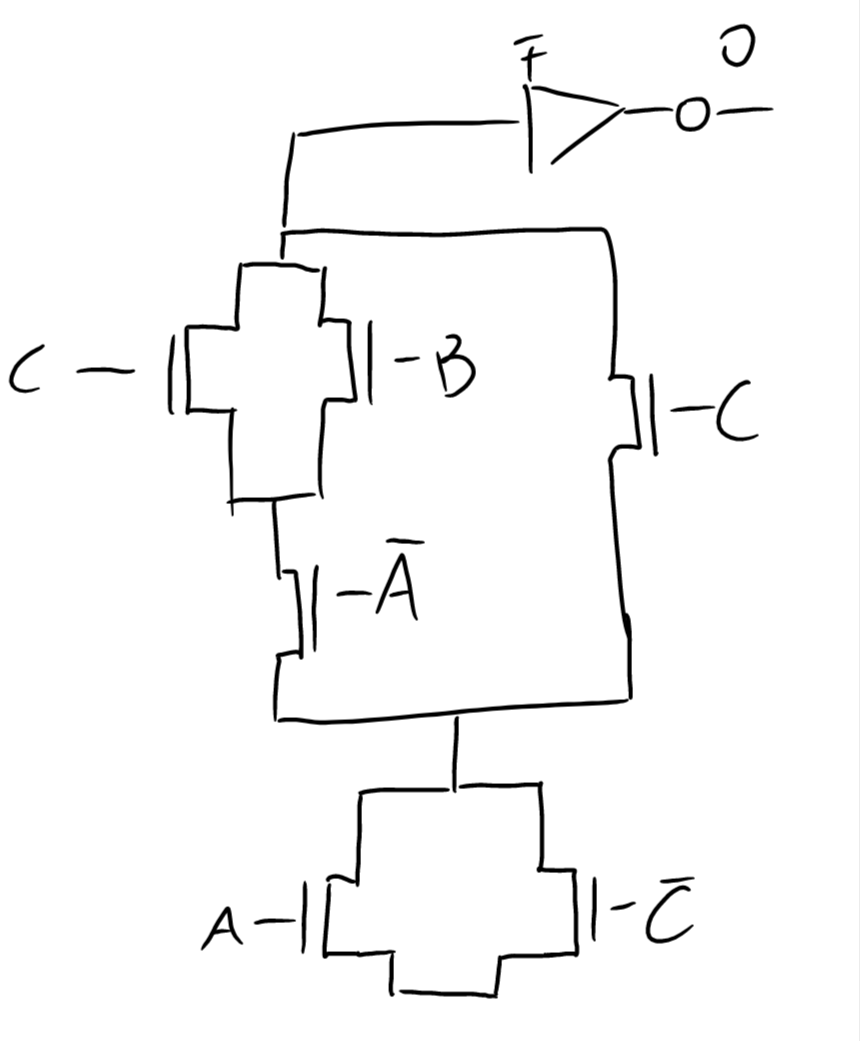 F̅ O
C B
C
A̅
A C̅